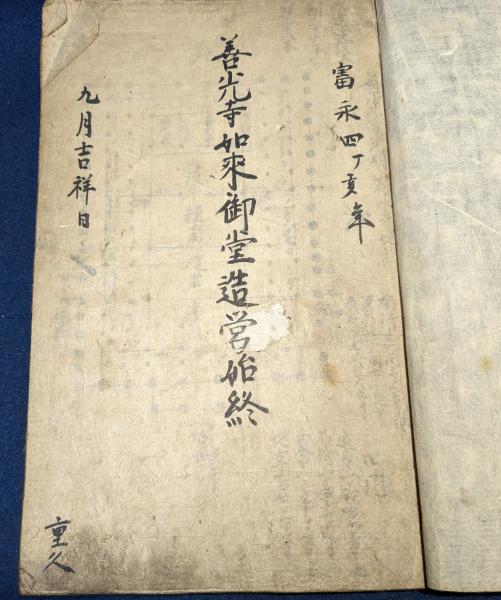 富永四丁亥年
善光寺如来御堂造営始終
九月吉祥日
重久